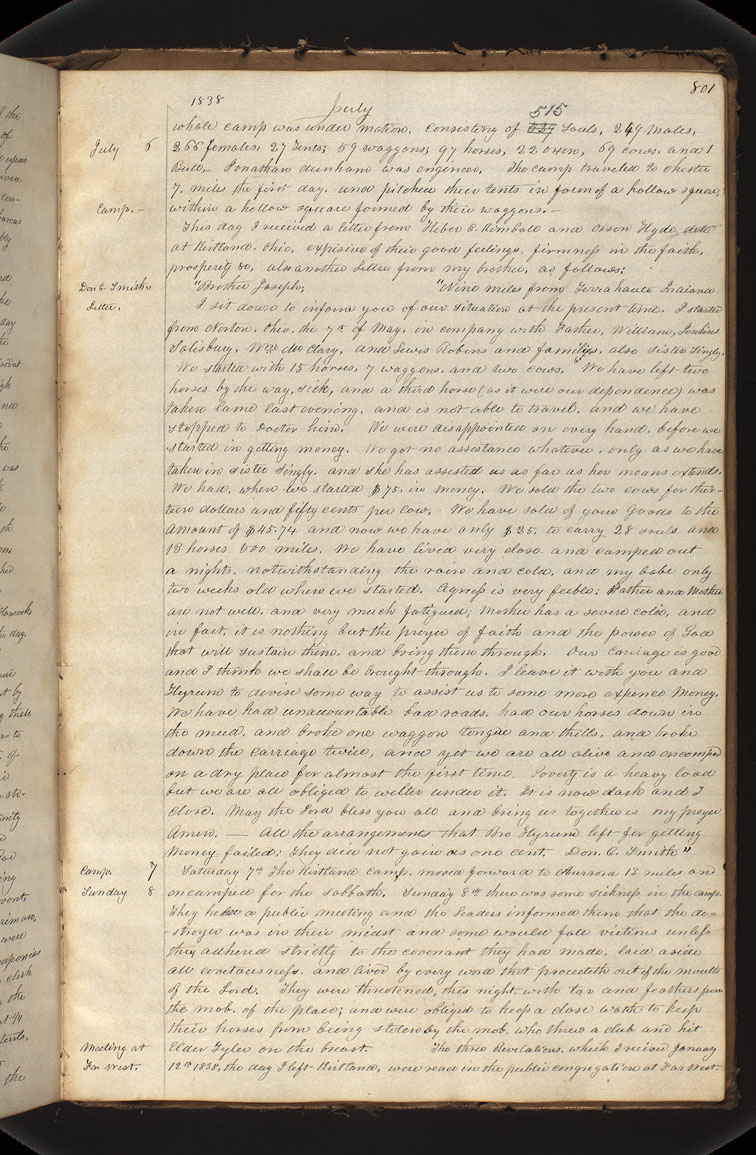 801
1838 July
515
whole camp was under motion, consisting of 529 Souls, 249 Males,
July 6 266 females, 27 Tents; 59 waggons; 97 horses, 22 oxen, 69 cows, and 1
Bull,— Jonathan dunham was engineer. The camp traveled to Chester
7. miles the first day, and pitched their tents in form of a hollow square,
Camp.— within a hollow square formed by their waggons.—
This day I received a letter from Heber C. Kimball and Orson Hyde, dated
at Kirtland. Ohio, expisive of their good feelings, firmness in the faith,
prosperity &c, also another Letter from my brother, as follows;
Don C. Smith's "Brother Joseph; "Nine miles from Terrahaute Indiana
Letter. I sit down to inform you of our situation at the present time. I started
from Norton, Ohio, the 7th of May, in company with Father, William, Jenkins
Salisbury, Wm McClary, and Lewis Robins and families, also Sister Singly.
We started with 15 horses, 7 waggons, and two cows. We have left two
horses by the way, sick, and a third horse (as it were our dependence) was
taken lame last evening, and is not able to travel, and we have
stopped to Doctor him. We were disappointed on every hand, before we
started in getting money. We got no assistance whatever, only as we have
taken in sister Singly, and she has assisted us as far as her means extends.
We had, when we started $75. in money. We sold the two cows for thir-
teen dollars and fifty cents per cow. We have sold of your Goods to the
amount of $45.74 and now we have only $25. to carry 28 souls and
13 horses 500 miles. We have lived very close, and camped out
a nights, notwithstanding the rain and cold, and my babe only
two weeks old when we started. Agness is very feeble; Father and Mother
are not well, and very much fatigued; Mother has a severe cold, and
in fact, it is nothing but the prayer of faith and the power of God
that will sustain them, and bring them through. Our carriage is good
and I think we shall be brought through. I leave it with you and
Hyrum to devise some way to assist us to some more expence Money.
We have had unaccountable bad roads, had our horses down in
the mud, and broke one waggon tongue and thills, and broke
down the carriage twice, and yet we are all alive and encamped
on a dry place for almost the first time. Poverty is a heavy load
but we are all obliged to welter under it. It is now dark and I
close. May the Lord bless you all and bring us together is my prayer
Amen. — All the arrangements that Bro Hyrum left for getting
Money failed; they did not gain us one cent. Don. C. Smith"
Camp. 7 Saturday 7th The Kirtland Camp. moved forward to Aurora 13 miles and
Sunday 8 encamped for the Sabbath. Sunday 8th there was some sickness in the camp.
They held a public meeting and the leaders informed them that the de-
-stroyer was in their midst and some would fall victims unless
they adhered strictly to the covenant they had made, laid aside
all covetousness, and lived by every word that proceedeth out of the mouth
of the Lord. They were threatened, this night, with tar and feathers from
the mob, of the place; and were obliged to keep a close watch to keep
their horses from being stolen by the mob, who threw a club and hit
Meeting at Elder Tyler on the breast. The three Revelations, which I received January
Far West. 12th 1838, the day I left Kirtland, were read in the public congregation at Far West.